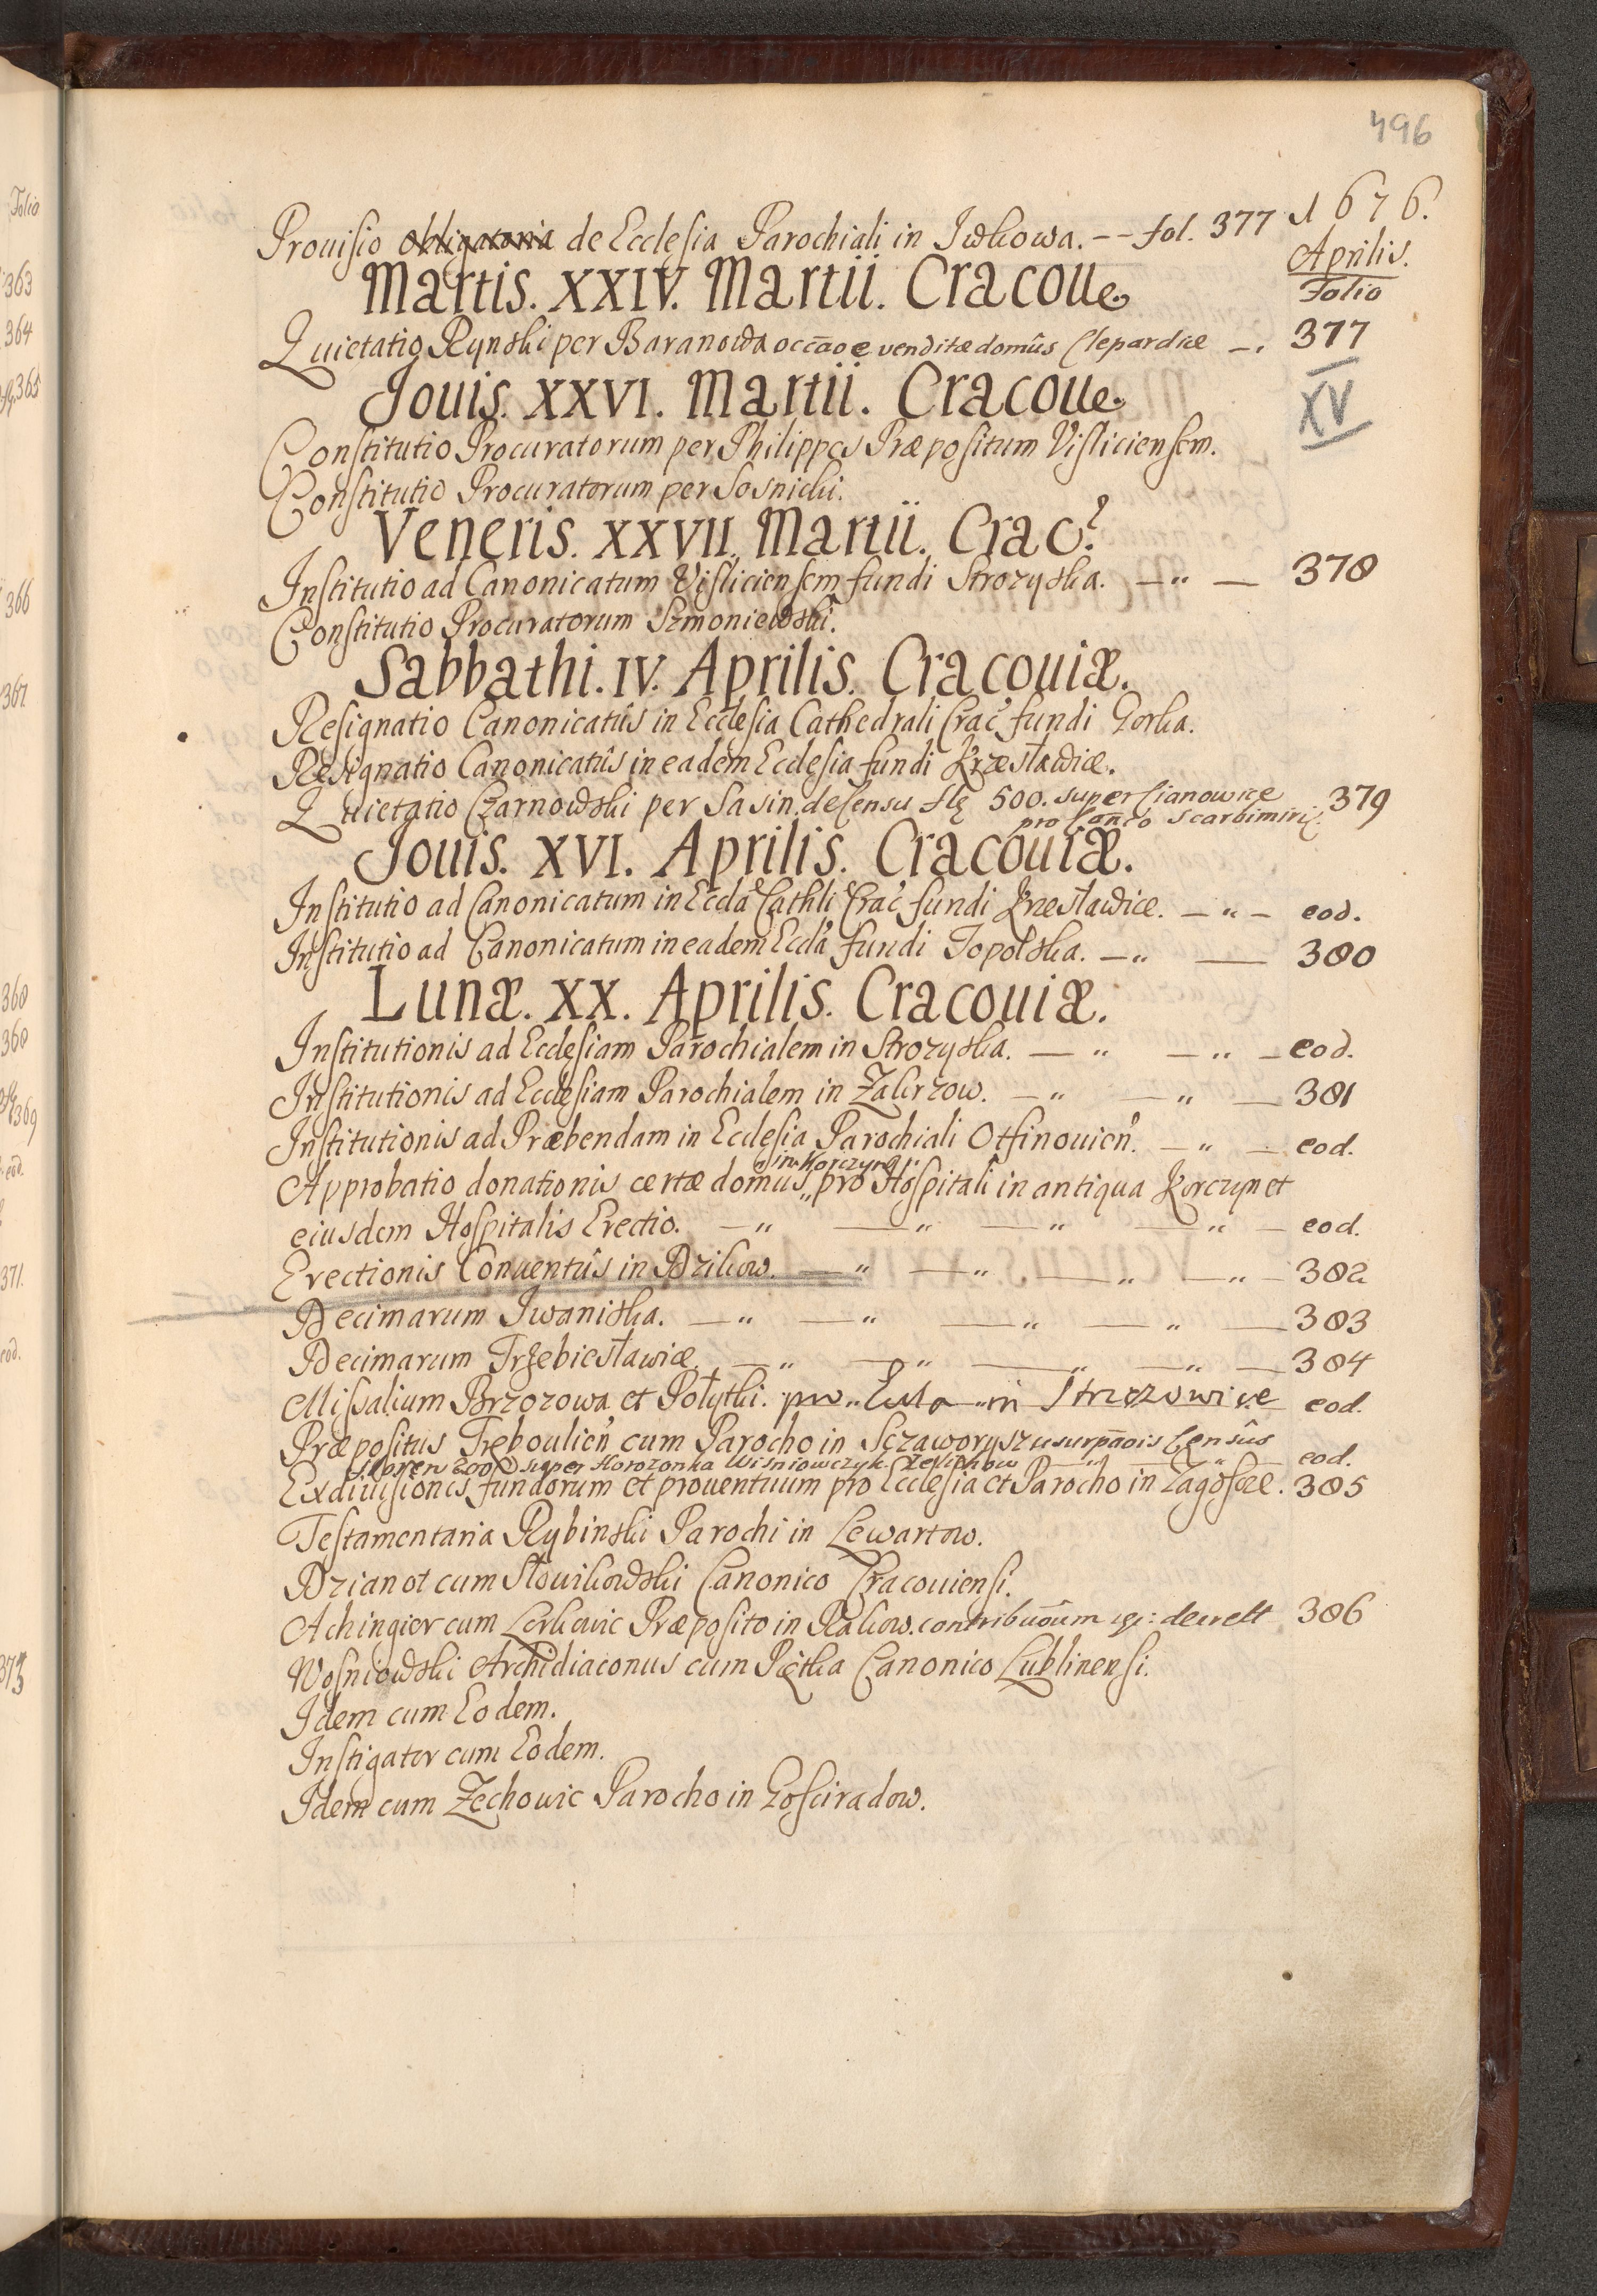 496
1676.
Aprilis.
Folio
Prouisio obligatoria de Ecclesia Parochiali in Iwkowa. -- fol. 377
Martis. XXIV. Martii. Cracouiæ
Quietatio Rynski per Baranowa occãoe venditæ domûs Clepardiæ -. 377
Jouis. XXVI. Martii. Cracouiæ
XV
Constitutio Procuratorum per Philippes Præpositum Visliciensem.
Constitutio Procuratorum per Sosnicki.
Veneris. XXVII. Martii. Crac.
Institutio ad Canonicatum Visliciensem fundi Strozyska. — " — 378
Constitutio Procuratorum Szmoniewski.
Sabbathi. IV. Aprilis. Cracouiæ.
Resignatio Canonicatûs in Ecclesia Cathedrali Crac fundi Gorka.
Resignatio Canonicatûs in eadem Ecclesia fundi Krzesławice.
Quietatio Czarnowski per Sasin de Censu flę 500. super Cianowice 379
pro Scarbimiri.
Jouis. XVI. Aprilis. Cracouiæ.
Institutio ad Canonicatum in Eccla Cathli Crac fundi Krzesławice. — " — eod.
Institutio ad Canonicatum in eadem Eccla fundi Topolska. — " — 380
Lunæ. XX. Aprilis. Cracouiæ.
Institutionis ad Ecclesiam Parochialem in Strozyska. — " — " — eod.
Institutionis ad Ecclesiam Parochialem in Zakrzow. — " — " — 381
Institutionis ad Præbendam in Ecclesia Parochiali Otfinouien. — " — eod.
in Korczyna
Approbatio donationis certæ domus " pro Hospitali in antiqua Korczyn et
eiusdem Hospitalis Erectio. — " — " — " — " — eod.
Erectionis Conuentûs in Dzikow. — " — " — " — " — 382
Decimarum Iwaniska. — " — " — " — " — 383
Decimarum Trzebiesławice. — " — " — " — " — 384
Missalium Brzozowa et Połytki. pro " Ecla " in Strzezowice eod.
Præpositus Treboulien cum Parocho in Sczaworysz usurpãois Censûs
super Horozonka Wisniowczyk Zelichow — " — " — eod.
Exdiuisionis fundorum et prouentuum pro Ecclesia et Parocho in Zagoscie. 385
Testamentaria Rybinski Parochi in Lewartow.
Dzianot cum Słowikowski Canonico Cracouiensi.
Achingier cum Lerkowic Præposito in Rakow. contribuõum decrett 386
Wosniowski Archidiaconus cum Piętka Canonico Lublinensi.
Idem cum Eodem.
Instigator cum Eodem.
Idem cum Zechowic Parocho in Gosciradow.